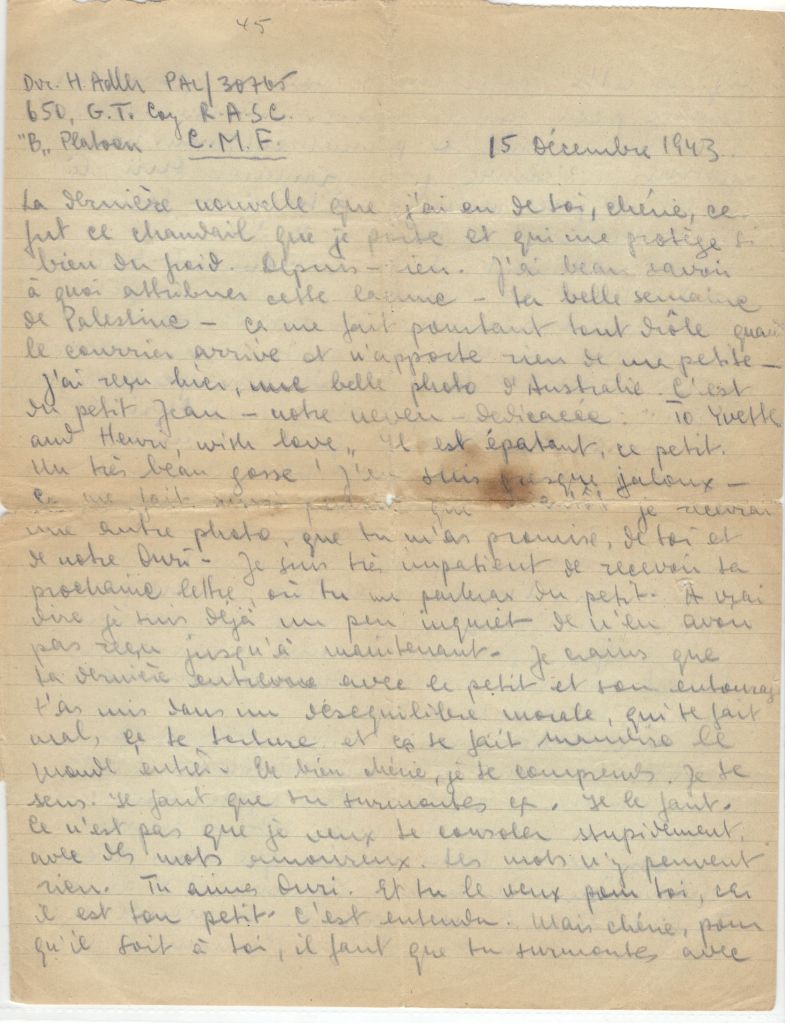 45
Dvr. H. Adler PAL/30765
650, G.T. Coy R.A.S.C.
"B„ Platoon C.M.F.
15 Décembre 1943.
La dernière nouvelle que j'ai eu de toi, chérie, ce
fut ce chandail que je porte et qui me protège si
bien du froid. Depuis – rien. J'ai beau savoir
à quoi attribuer cette lacune – ta belle semaine
de Palestine – ça me fait pourtant tout drôle quand
le courrier arrive et n'apporte rien de ma petite –
J'ai reçu hier, une belle photo d'Australie. C'est
du petit Jean – notre neveu – dedicacée: "To Yvette
and Henri, with love„ Il est épatant, ce petit.
Un très beau gosse! J'en suis presque jaloux –
Ça me fait que je recevrai
une autre photo, que tu m'as promise, de toi et
de notre Ouri – Je suis très impatient de recevoir ta
prochaine lettre, où tu me parleras du petit. A vrai
dire je suis déjà un peu inquiet de n'en avoir
pas reçu jusqu'à maintenant – Je crains que
ta dernière entrevue avec le petit et son entourage
t'as mis dans un déséquilibre morale, qui te fait
mal, ça te torture et ça te fait maudire le
monde entier. Eh bien chérie, je te comprends. Je te
sens. Il faut que tu surmontes ça. Il le faut.
Ce n'est pas que je veux te consoler stupidement,
avec des mots amoureux. Les mots n'y peuvent
rien. Tu aimes Ouri. Et tu le veux pour toi, car
il est ton petit. C'est entendu. Mais chérie, pour
qu'il soit à toi, il faut que tu surmontes avec